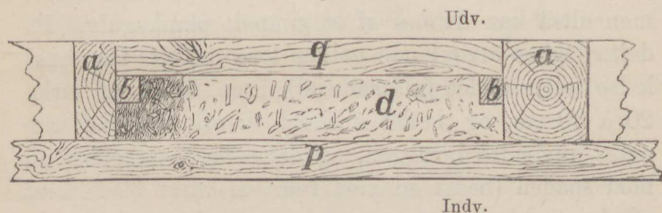 Udv.
a q a
b d b
p
Indv.